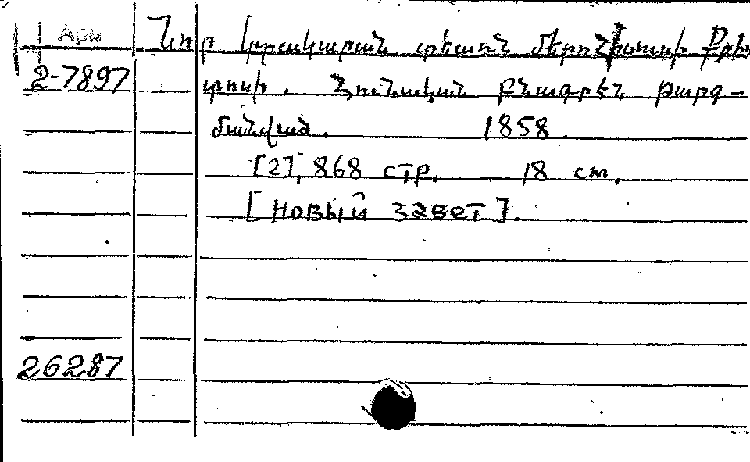 Арм
Նոր կտակարան տեառն մերոյ Յիսուսի Քրիս
2-7897
տոսի. Յունական բնագրէն թարգ-
մանված. 1858
[2], 868 стр. — 18 см.
[Новый завет].
26287